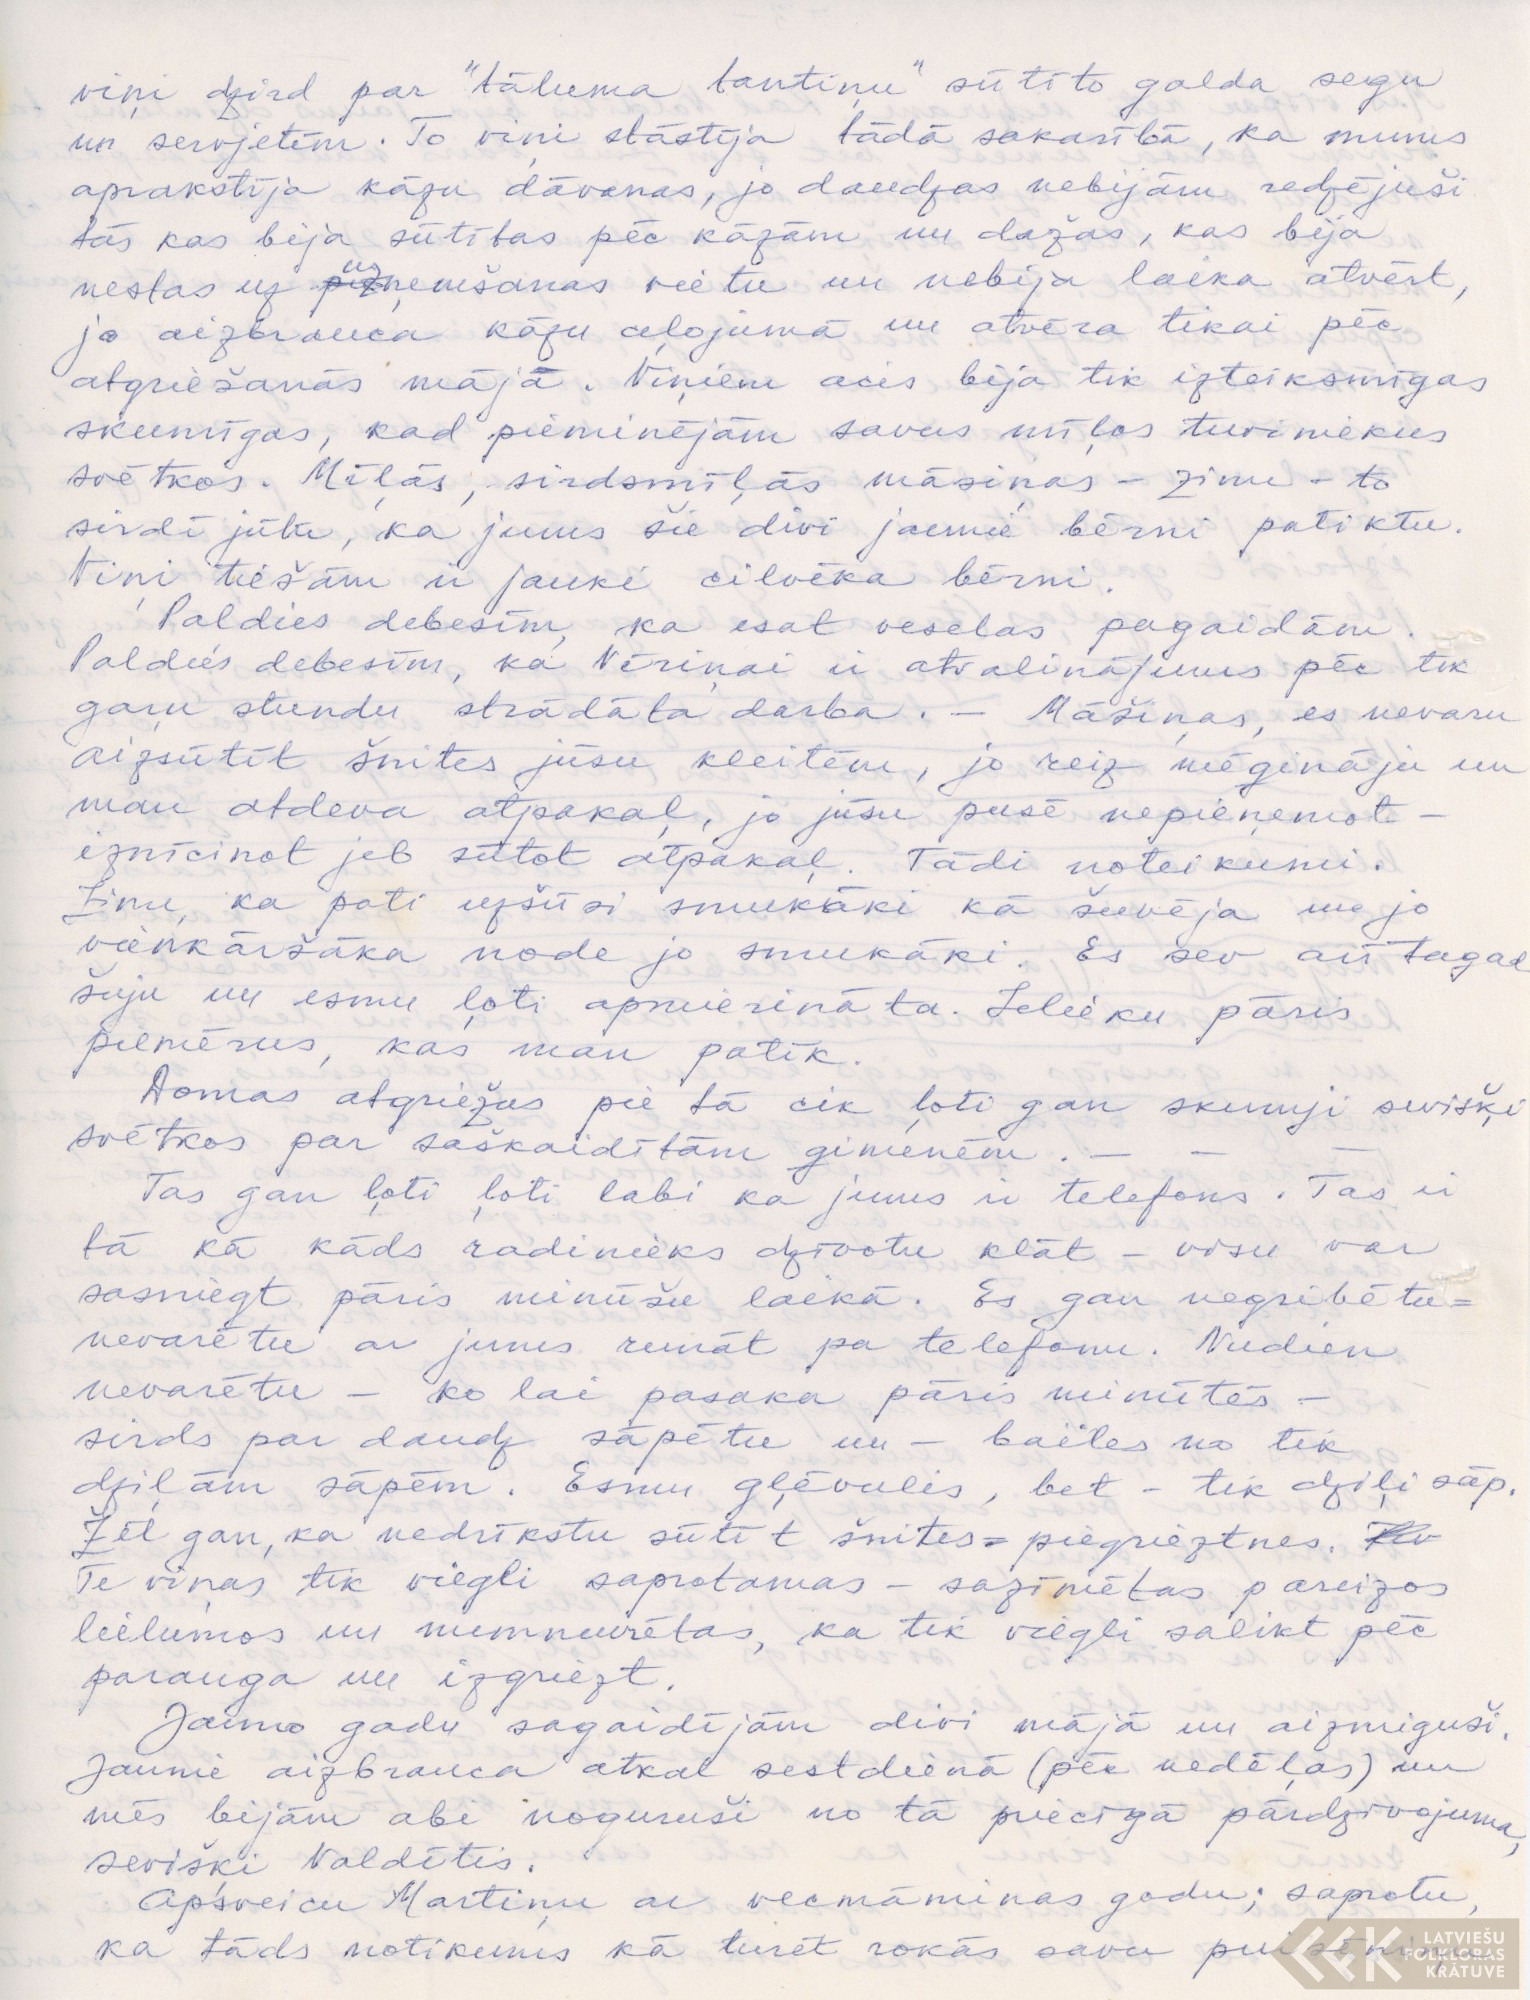 viņi dzird par "tāluma tantiņu" sūtīto galda segu
un servjetēm. To viņi stāstīja tādā sakarībā, ka mums
aprakstīja kāzu dāvanas, jo daudzas nebijām redzējuši
tās kas bija sūtītas pēc kāzām un dažas, kas bija
nestas uz uzņemšanas vietu un nebija laika atvērt,
jo aizbrauca kāzu ceļojumā un atvēra tikai pēc
atgriešanās mājā. Viņiem acis bija tik izteiksmīgas
skumīgas, kad pieminējām savus mīļos tuviniekus
svētkos. Mīļās, sirdsmīļās māsiņas - zinu - to
sirdī jūtu, ka jums šie divi jaunie bērni patiktu.
Viņi tiešām ir jauki cilvēka bērni.
Paldies debesīm, ka esat veselas pagaidām.
Paldies debesīm, ka Vēriņai ir atvaļinājums pēc tik
garu stundu strādāta darba. - Māsiņas, es nevaru
aizsūtīt šnites jūsu kleitēm, jo reiz mēģināju un
man atdeva atpakaļ, jo jūsu pusē nepieņemot -
iznīcinot jeb sūtot atpakaļ. Tādi noteikumi.
Zinu, ka pati uzšūsi smukāki kā šuvēja un jo
vienkāršāka mode jo smukāki. Es sev arī tagad
šuju un esmu ļoti apmierināta. Ielieku pāris
piemērus, kas man patīk.
Domas atgriežas pie tā cik ļoti gan skumji sevišķi
svētkos par sašķaidītām ģimenēm. - - -
Tas gan ļoti ļoti labi ka jums ir telefons. Tas ir
tā kā kāds radinieks dzīvotu klāt - visu var
sasniegt pāris minūšu laikā. Es gan negribētu=
nevarētu ar jums runāt pa telefonu. Nudien
nevarētu - ko lai pasaka pāris minūtēs -
sirds par daudz sāpētu un - bailes no tik
dziļām sāpēm. Esmu gļēvulis, bet - tik dziļi sāp.
Žēl gan, ka nedrīkstu sūtīt šnites=piegrieztnes.
Te viņas tik viegli saprotamas - sazīmētas pareizos
lielumos un numurētas, ka tik viegli salikt pēc
parauga un izgriezt.
Jauno gadu sagaidījām divi mājā un aizmiguši.
Jaunie aizbrauca atkal sestdienā (pēc nedēļas) un
mēs bijām abi noguruši no tā priecīgā pārdzīvojuma,
sevišķi Valdītis.
Apsveicu Martiņu ar vecmāmiņas godu; saprotu,
ka tāds notikums kā turēt rokās savu
LATVIEŠU
FOLKLORAS
KRĀTUVE